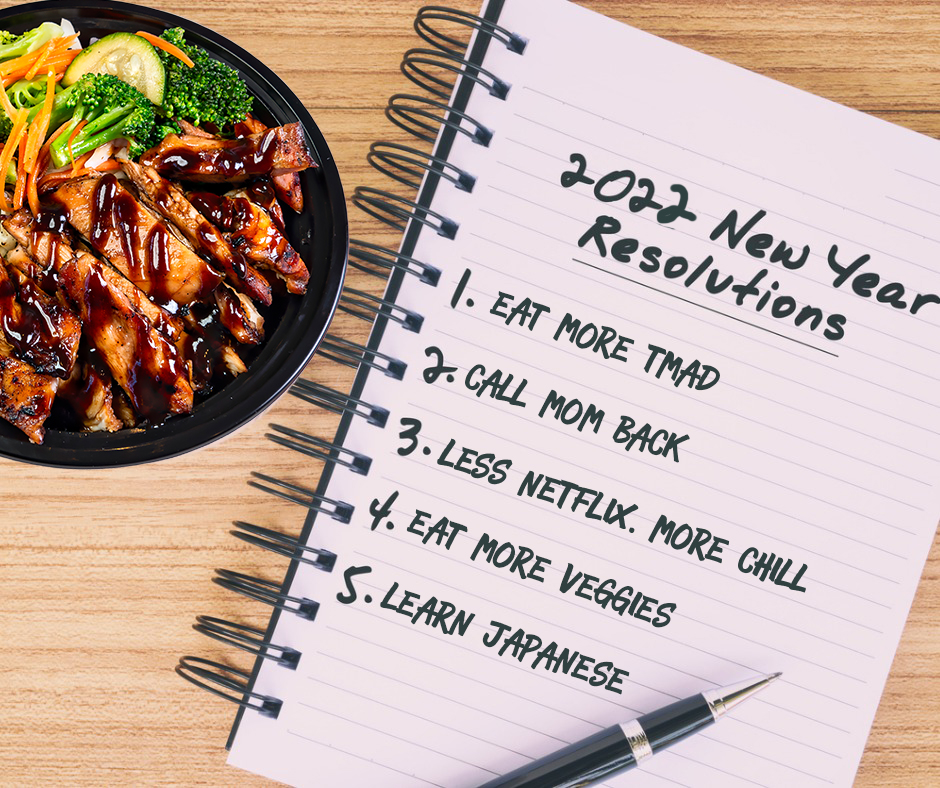 2022 New Year
Resolutions
1. EAT MORE TMAD
2. CALL MOM BACK
3. LESS NETFLIX. MORE CHILL
4. EAT MORE VEGGIES
5. LEARN JAPANESE